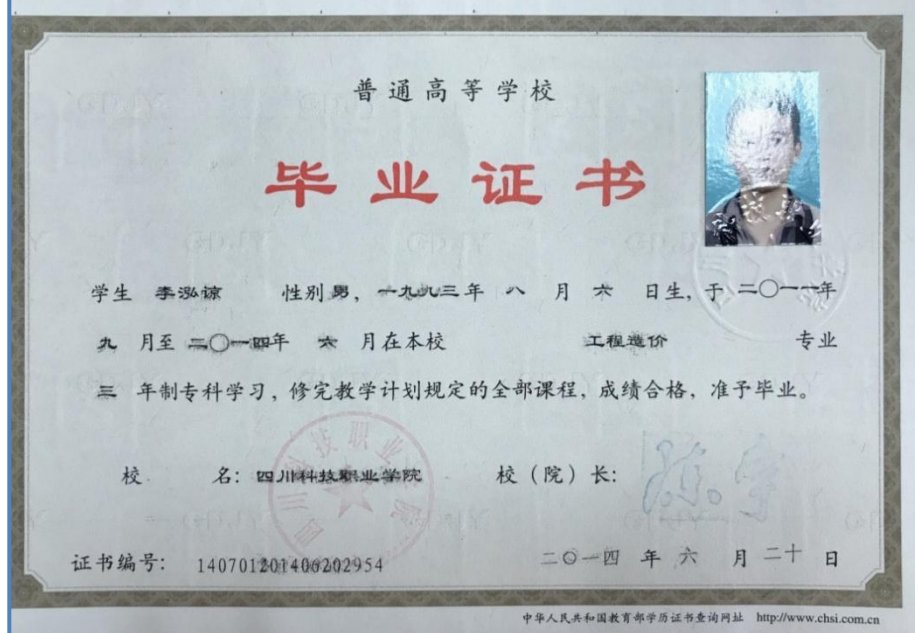 普通高等学校
毕业证书
学生 李泓谅 性别 男，一九九三年 八 月 六 日生，于 二〇一一年
九 月至 二〇一四年 六 月在本校 工程造价 专业
三 年制专科学习，修完教学计划规定的全部课程，成绩合格，准予毕业。
校 名：四川科技职业学院 校（院）长：
证书编号：140701201406202954 二〇一四 年 六 月 二十 日
中华人民共和国教育部学历证书查询网址 http://www.chsi.com.cn
四川科技职业学院